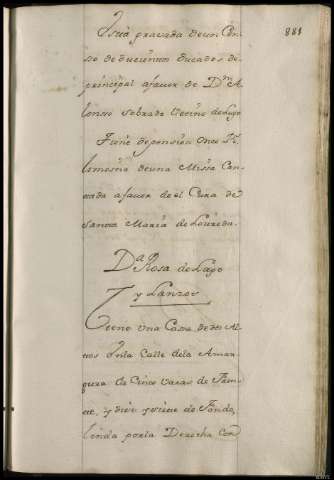 881
Está gravada de un Cen
so de ducientos ducados de
principal afavor de Dn. A
lonsso Sobrado vecino de Lugo
Tiene de pension once Rs.
limosna de una Missa Can
tada afavor de el Cura de
Santa Maria de
Da. Rosa de Lago
y Lanzos
Tiene Una Cassa de dos Al
tos En la Calle dela Amar
gura de Cinco Varas de
te, y diez y siete de fondo,
linda por la Derecha Con